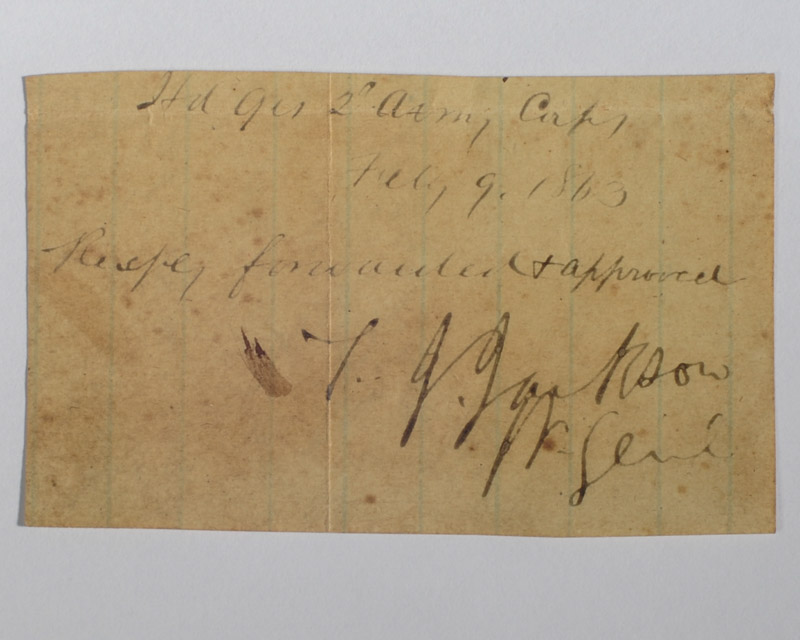 Hd Qrs 2d Army Corps
Feby 9. 1863
Respfy forwarded & approved
T. J. Jackson
Lt Genl